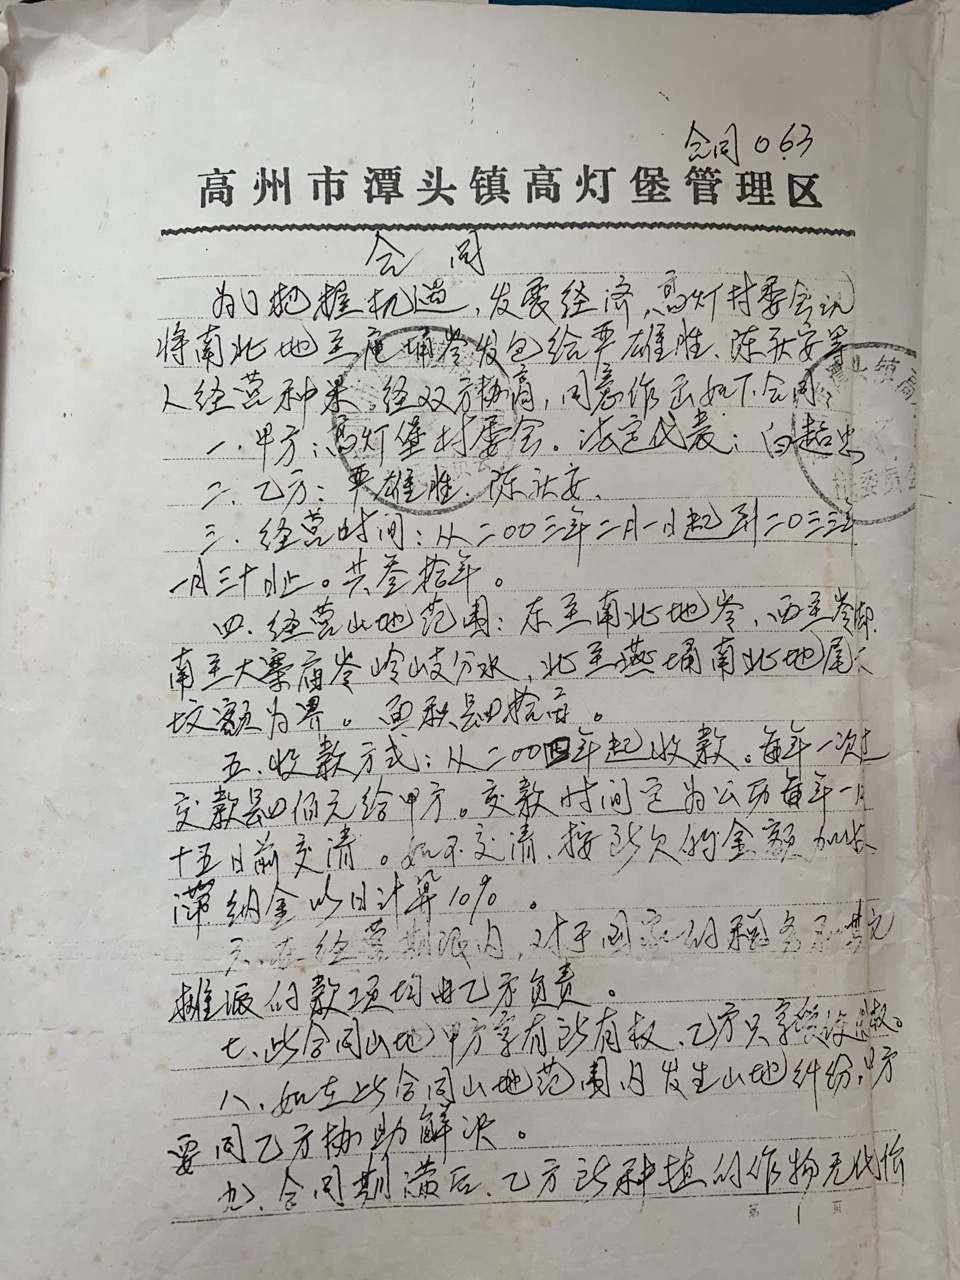 合同063
高州市潭头镇高灯堡管理区
合同
为了把握机遇，发展经济，高灯村委会现
将南北地至庵埇岺发包给严雄胜、陈
人经营种果。经双方协商，同意作出如下合同：
一、甲方：高灯堡村委会。法定代表：白超忠
二、乙方：严雄胜、陈
三、经营时间：从二00三年二月一日起到二0三三年
一月三十日止。共叁拾年。
四、经营山地范围：东至南北地岺，西至岺
南至大寨庙岺岭岐分水，北至燕埇南北地尾
坟额为界。面积是四拾亩。
五、收款方式：从二00四年起收款。每年一次
交款四佰元给甲方。交款时间定为公历每年一月
十五日前交清。如不交清、按所欠的金额加收
滞纳金以日计算10%。
六、在经营期限内，对于国家的税务和其它
摊派的款项均由乙方负责。
七、此合同山地甲方享有所有权、乙方只享受权。
八、如在此合同山地范围内发生山地纠纷，甲方
要同乙方协助解决。
九、合同期满后、乙方所种植的作物无代价
第1页